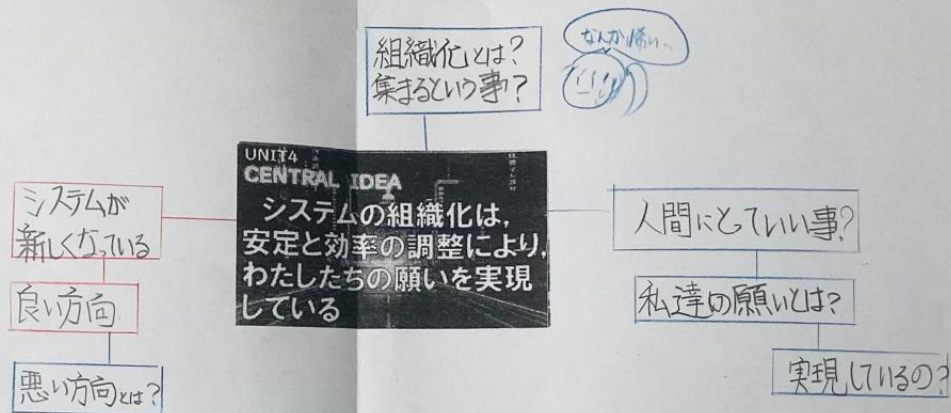 組織化とは?
集まるという事?
なんか怖い…
UNIT4
CENTRAL IDEA
システムの組織化は,
安定と効率の調整により,
わたしたちの願いを実現
している
システムが
新しくなっている
良い方向
悪い方向とは?
人間にとっていい事?
私達の願いとは?
実現しているの?